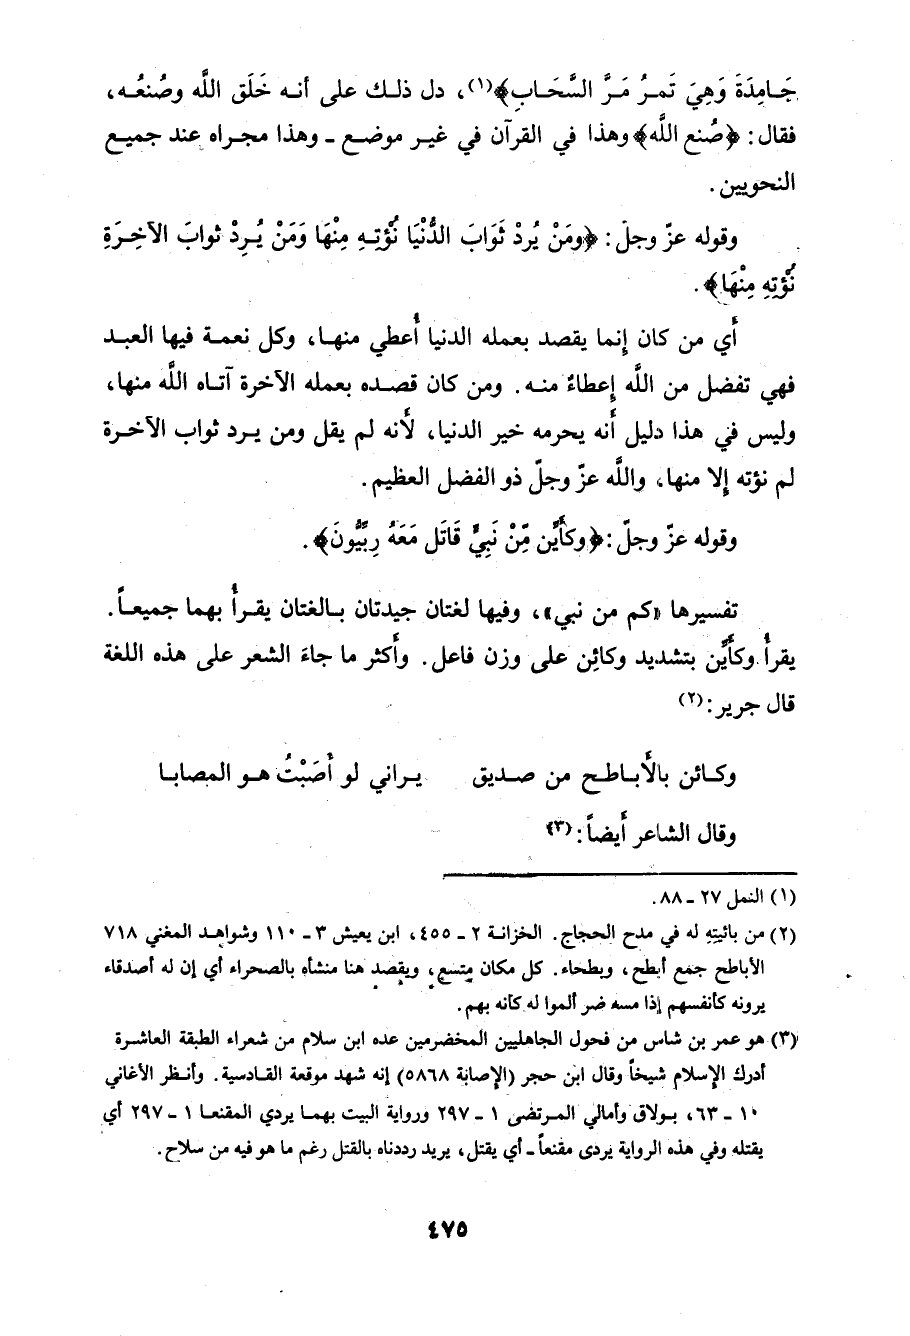 جَامِدَةَ وَهِيَ تَمرُ مَرَّ السَّحَابِ﴾(١)، دل ذلك على أنه خَلَق الله وصُنعُه،
فقال: ﴿صُنع الله﴾ وهذا في القرآن في غير موضع ـ وهذا مجراه عند جميع
النحويين.
وقوله عزّ وجلّ: ﴿ومَنْ يُردْ ثَوَابَ الدُّنْيَا نُؤْتِهِ مِنْهَا وَمَنْ يُرِدْ ثوابَ الآخِرَةِ
نُؤْتِهِ مِنْهَا﴾.
أَي من كان إِنما يقصد بعمله الدنيا أُعطي منها، وكل نعمة فيها العبد
فهي تفضل من الله إِعطاءً منه. ومن كان قصده بعمله الآخرة آتاه الله منها،
وليس في هذا دليل أَنه يحرمه خير الدنيا، لأَنه لم يقل ومن يرد ثواب الآخرة
لم نؤته إِلا منها، والله عزّ وجلّ ذو الفضل العظيم.
وقوله عزّ وجلّ: ﴿وكأَيِّن مِّنْ نَبِيٍّ قَاتَل مَعَهُ رِبِّيُّونَ﴾.
تفسيرها «كم من نبي»، وفيها لغتان جيدتان بالغتان يقرأُ بهما جميعاً.
يقرأُ وكأَيِّن بتشديد وكائِن على وزن فاعل. وأَكثر ما جاءَ الشعر على هذه اللغة
قال جرير:(٢)
وكائن بالأَباطح من صديق يراني لو أُصَبْتُ هو المصابا
وقال الشاعر أَيضاً:(٣)
(١) النمل ٢٧ ـ ٨٨.
(٢) من بائيتِهِ له في مدح الحجاج. الخزانة ٢ ـ ٤٥٥، ابن يعيش ٣ ـ ١١٠ وشواهد المغني ٧١٨
الأباطح جمع أبطح، وبطحاء. كل مكان متسع، ويقصد هنا منشأه بالصحراء أي إن له أصدقاء
يرونه كأنفسهم إذا مسه ضر ألموا له كأنه بهم.
(٣) هو عمر بن شاس من فحول الجاهليين المخضرمين عده ابن سلام من شعراء الطبقة العاشرة
أدرك الإسلام شيخاً وقال ابن حجر (الإصابة ٥٨٦٨) إنه شهد موقعة القادسية. وأنظر الأغاني
١٠ ـ ٦٣، بولاق وأمالي المرتضى ١ ـ ٢٩٧ ورواية البيت بهما يردي المقنعا ١ ـ ٢٩٧ أي
يقتله وفي هذه الرواية يردى مقنعاً ـ أي يقتل، يريد رددناه بالقتل رغم ما هو فيه من سلاح.
٤٧٥